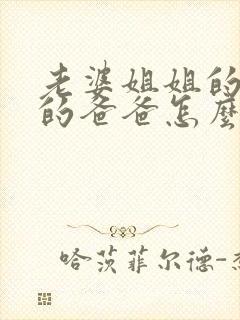 老婆姐姐的
的爸爸怎麼
哈茨菲尔德-杰